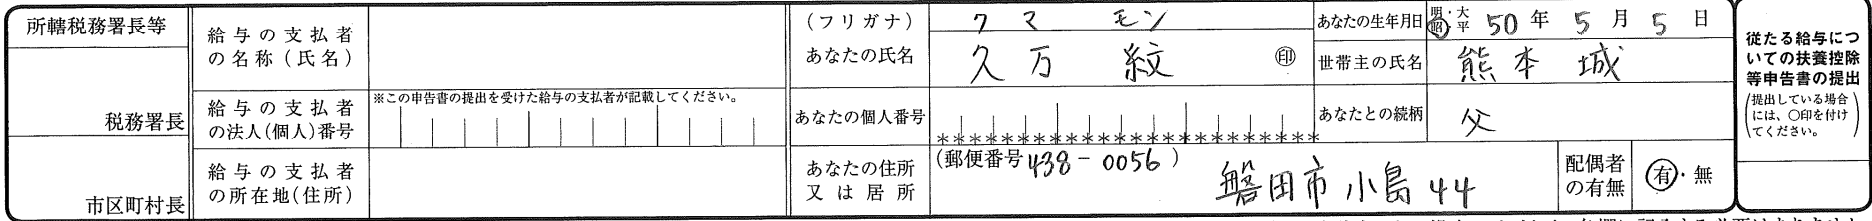 所轄税務署長等
税務署長
市区町村長
給与の支払者
の名称(氏名)
給与の支払者
の法人(個人)番号
※この申告書の提出を受けた給与の支払者が記載してください。
給与の支払者
の所在地(住所)
(フリガナ) クマ モン
あなたの氏名 久万 紋 ㊞
あなたの個人番号
******************
あなたの住所
又は居所
(郵便番号438-0056)
磐田市小島44
あなたの生年月日 明・大
昭・平 50年 5月 5日
世帯主の氏名 熊本 城
あなたとの続柄 父
配偶者
の有無
有・無
従たる給与につ
いての扶養控除
等申告書の提出
(提出している場合
には、○印を付け
てください。)